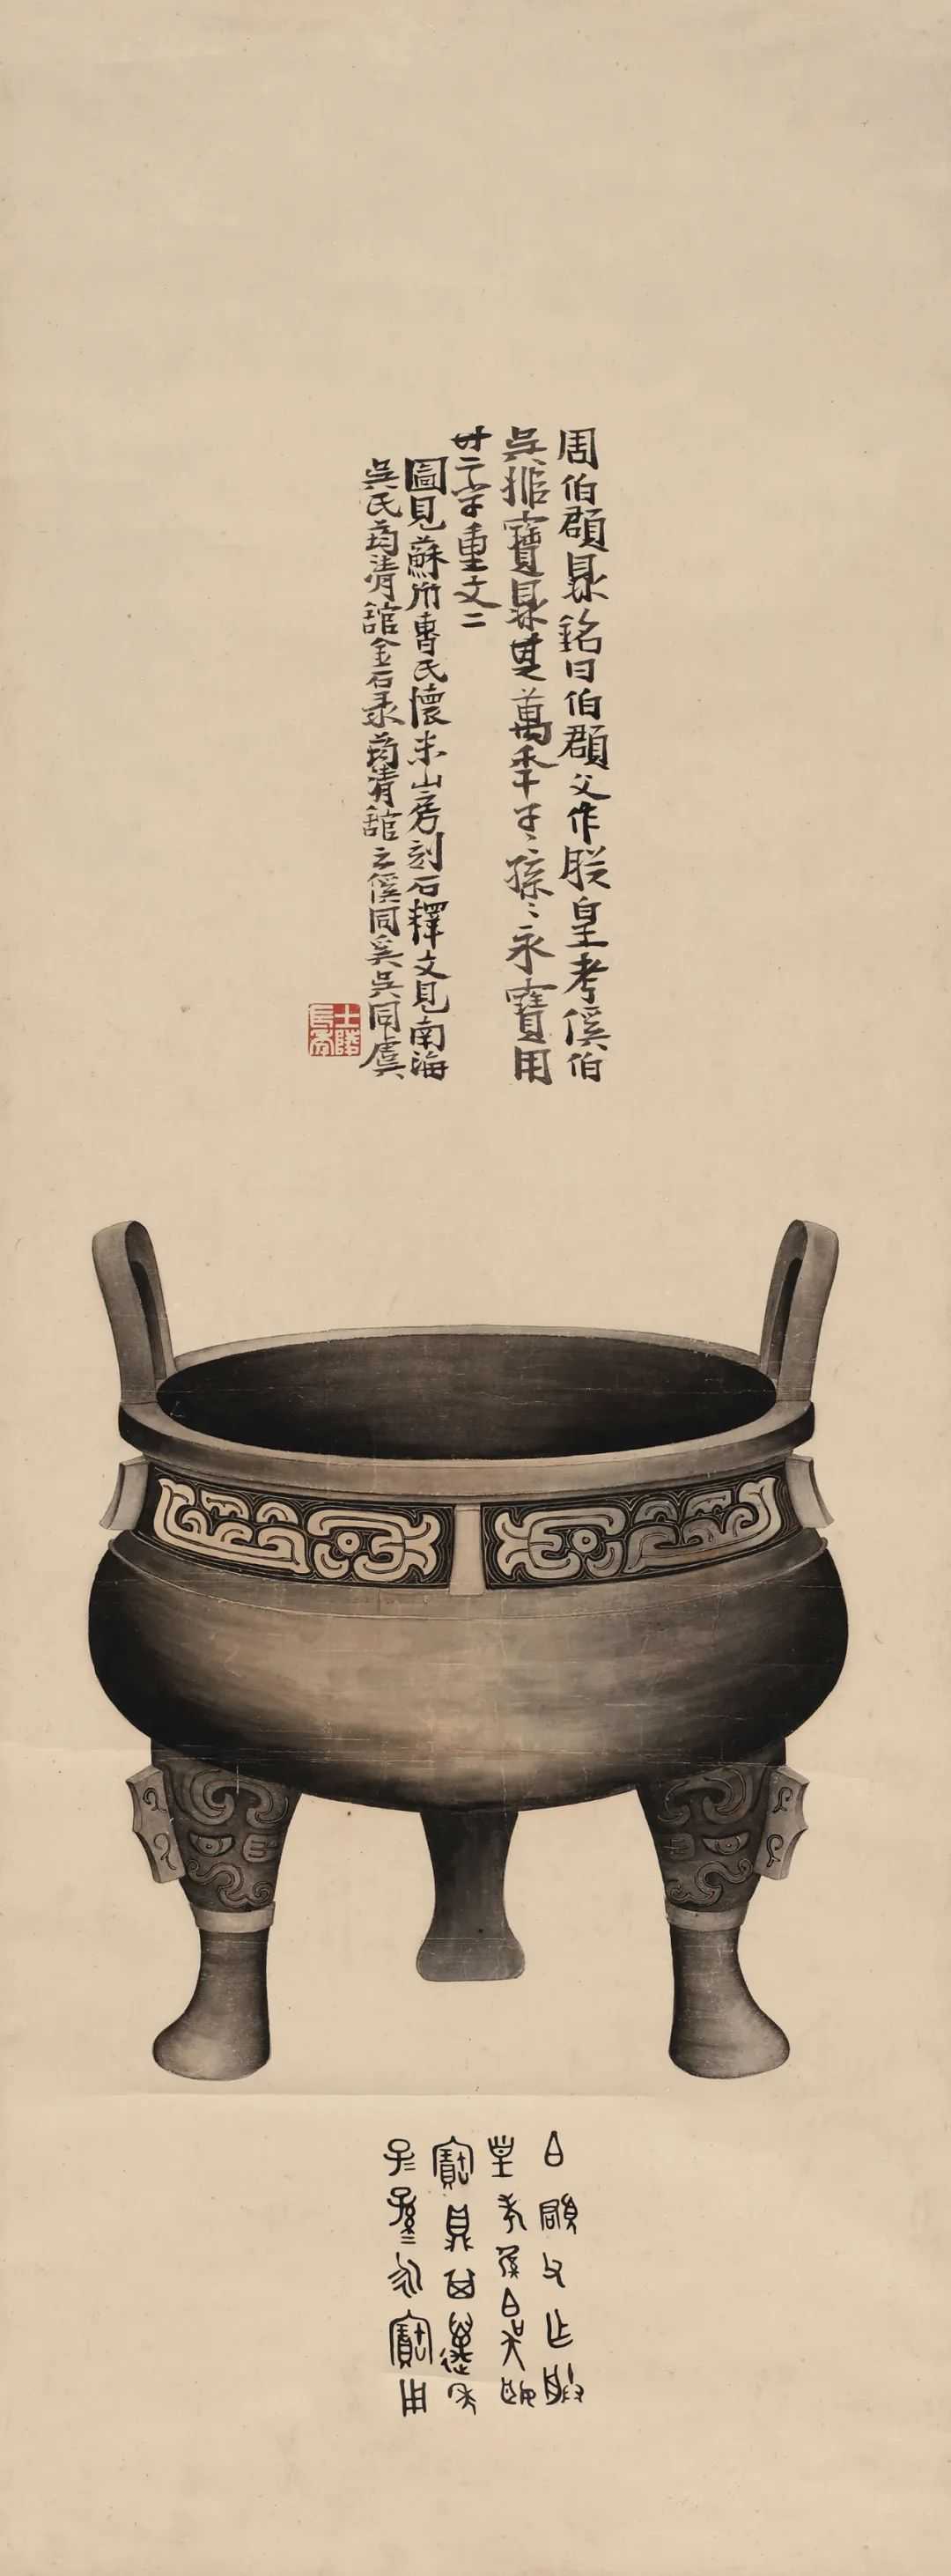 周伯頵鼎銘曰伯頵父作朕皇考傒伯
吳姬寶鼎其萬年子〻孫〻永寶用
廿二字重文二
圖見蘇州曹氏懷米山房刻石釋文見南海
吳氏筠清舘金石录筠清舘云傒同奚吳同虞
士陵長壽
白頵父乍朕
皇考傒白吳姬
寶鼎其萬年
子〻孫〻永寶用